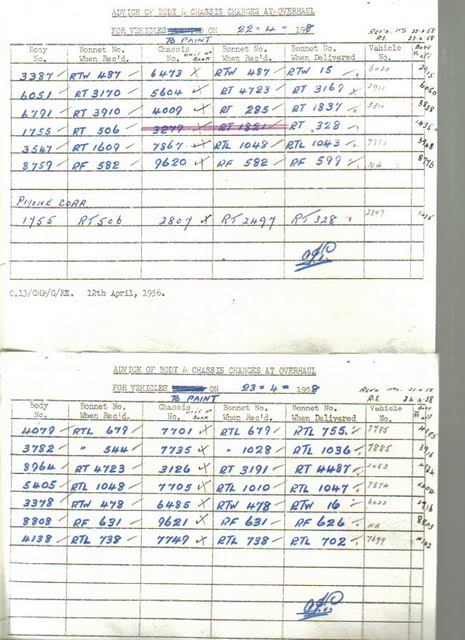 ADVICE OF BODY & CHASSIS CHANGES AT OVERHAUL
FOR VEHICLES ON 22-4- 1958 REC'D. 23-4-58
TO PAINT R.S. 23-4-58
Body No. Bonnet No. When Rec'd. Chassis No. Unit No Book Bonnet No. When Rec'd. Bonnet No. When Delivered Vehicle No. Body
3387 RTW 487 6473 RTW 487 RTW 15 6020
6051 RT 3170 5604 RT 4723 RT 3167
6791 RT 3910 4009 RT 285 RT 1837
1755 RT 506 3279 RT 1821 RT 328
3547 RT 1609 7867 RTL 1048 RTL 1043
8759 RF 582 9620 RF 582 RF 599 NA
PHONE CORR
1755 RT 506 2807 RT 2497 RT 328 2897
C.13/CHP/O/RE. 12th April, 1956.
ADVICE OF BODY & CHASSIS CHANGES AT OVERHAUL
FOR VEHICLES ON 23-4- 1958 REC'D
TO PAINT R.S
Body No. Bonnet No. When Rec'd. Chassis No. Unit No Book Bonnet No. When Recd. Bonnet No. When Delivered Vehicle No. Body
4079 RTL 679 7701 RTL 679 RTL 755 7785
3782 " 544 7735 " 1028 RTL 1036 7885
8964 RT 4723 3126 RT 3191 RT 4487
5405 RTL 1048 7705 RTL 1010 RTL 1047
3378 RTW 478 6485 RTW 478 RTW 16 6022
8808 RF 631 9621 RF 631 RF 626 NA
4138 RTL 738 7749 RTL 738 RTL 702 7699